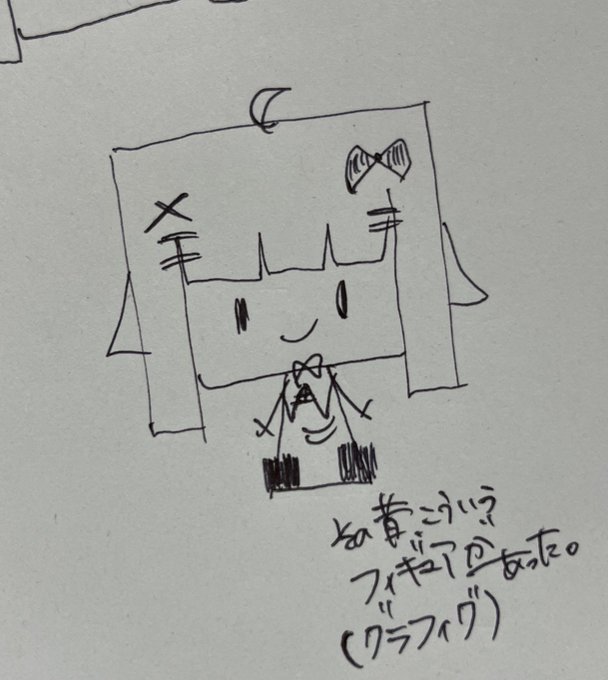 その昔こういう
フィギュアが あった。
(グラフィグ)